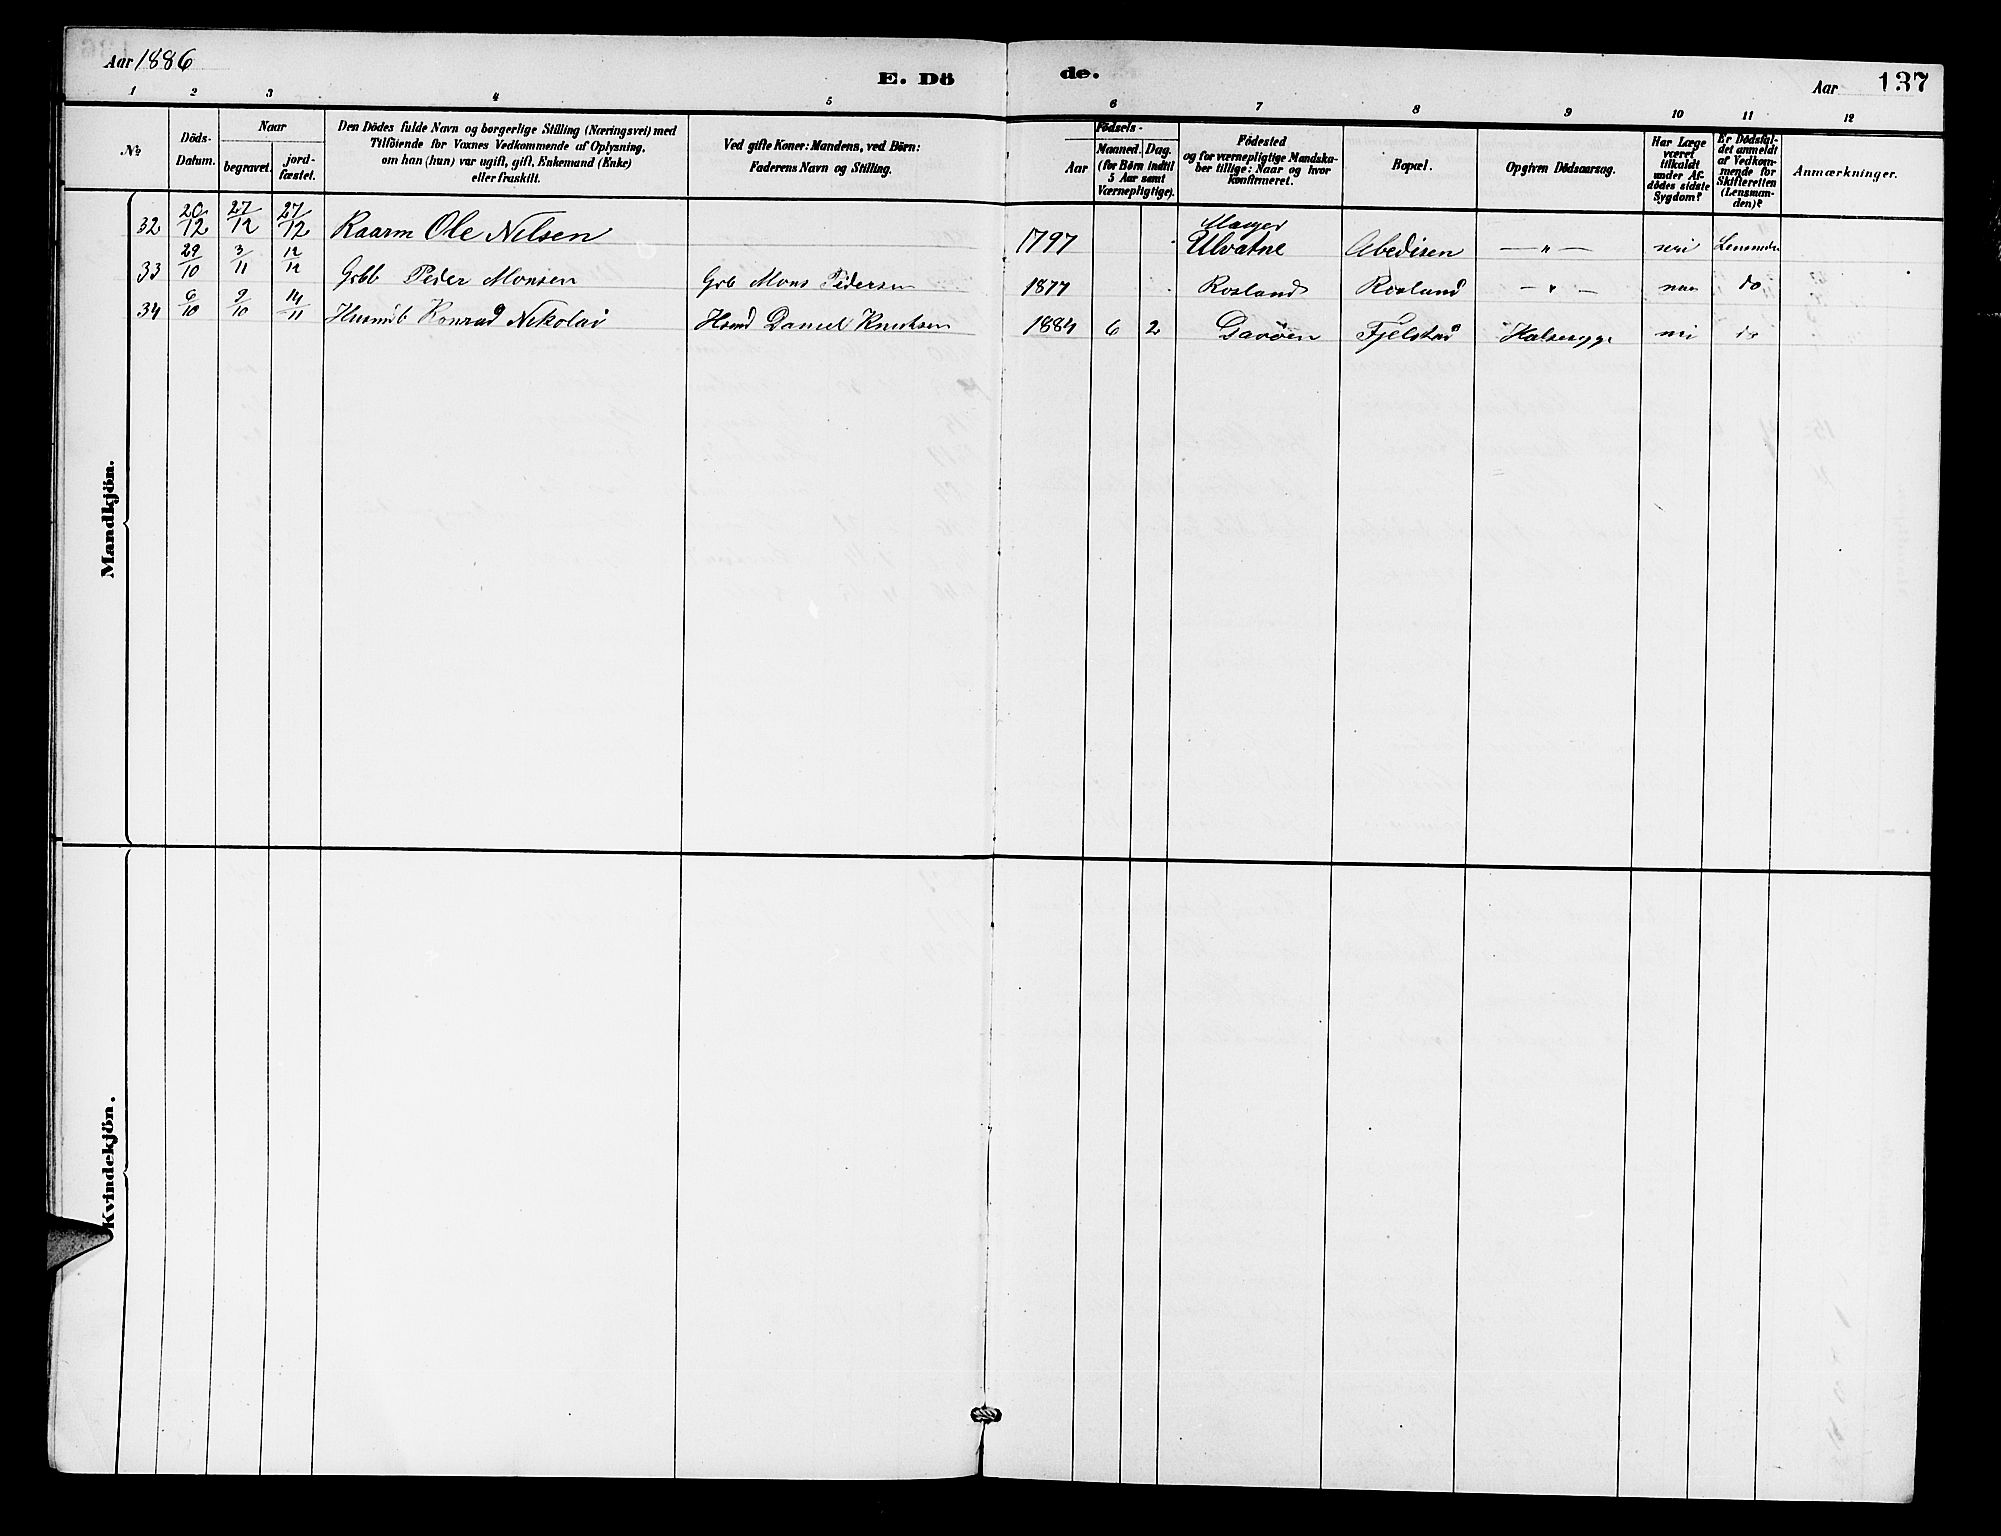 Aar 1886
E. Dö de.
Aar 137
1 2 3 4 5 6 7 8 9 10 11 12
№
Döds-Datum.
Naar
begravet.
jord-fæstet.
Den Dödes fulde Navn og borgerlige Stilling (Næringsvei) med
Tilföiende for Voxnes Vedkommende af Oplysning,
om han (hun) var ugift, gift, Enkemand (Enke)
eller fraskilt.
Ved gifte Koner: Mandens, ved Börn:
Faderens Navn og Stilling.
Födsels-
Aar
Maaned. Dag.
(for Börn indtil
5 Aar samt
Værnepligtige).
Födested
og for værnepligtige Mandska-
ber tillige: Naar og hvor
konfirmeret.
Bopæl.
Opgiven Dödsaarsag.
Har Læge
været
tilkaldt
under Af-
dödes sidste
Sygdom?
Er Dödsfal-
det anmeldt
af Vedkom-
mende for
Skifteretten
(Lensman-
den)?
Anmærkninger.
Mandkjön.
32 20/12 27/12 27/12 Raarm Ole Nilsen 1797 Ulvatne — " —
33 29/10 3/11 12/12 Grbb Peder Monsen Grb Mons Pedersen 1877 Rosland Rosland — " — do
34 6/10 9/10 14/11 Konrad Nikolai Daniel Knutsen 1884 6 2 Fjelstad Halsesyge do
Kvindekjön.